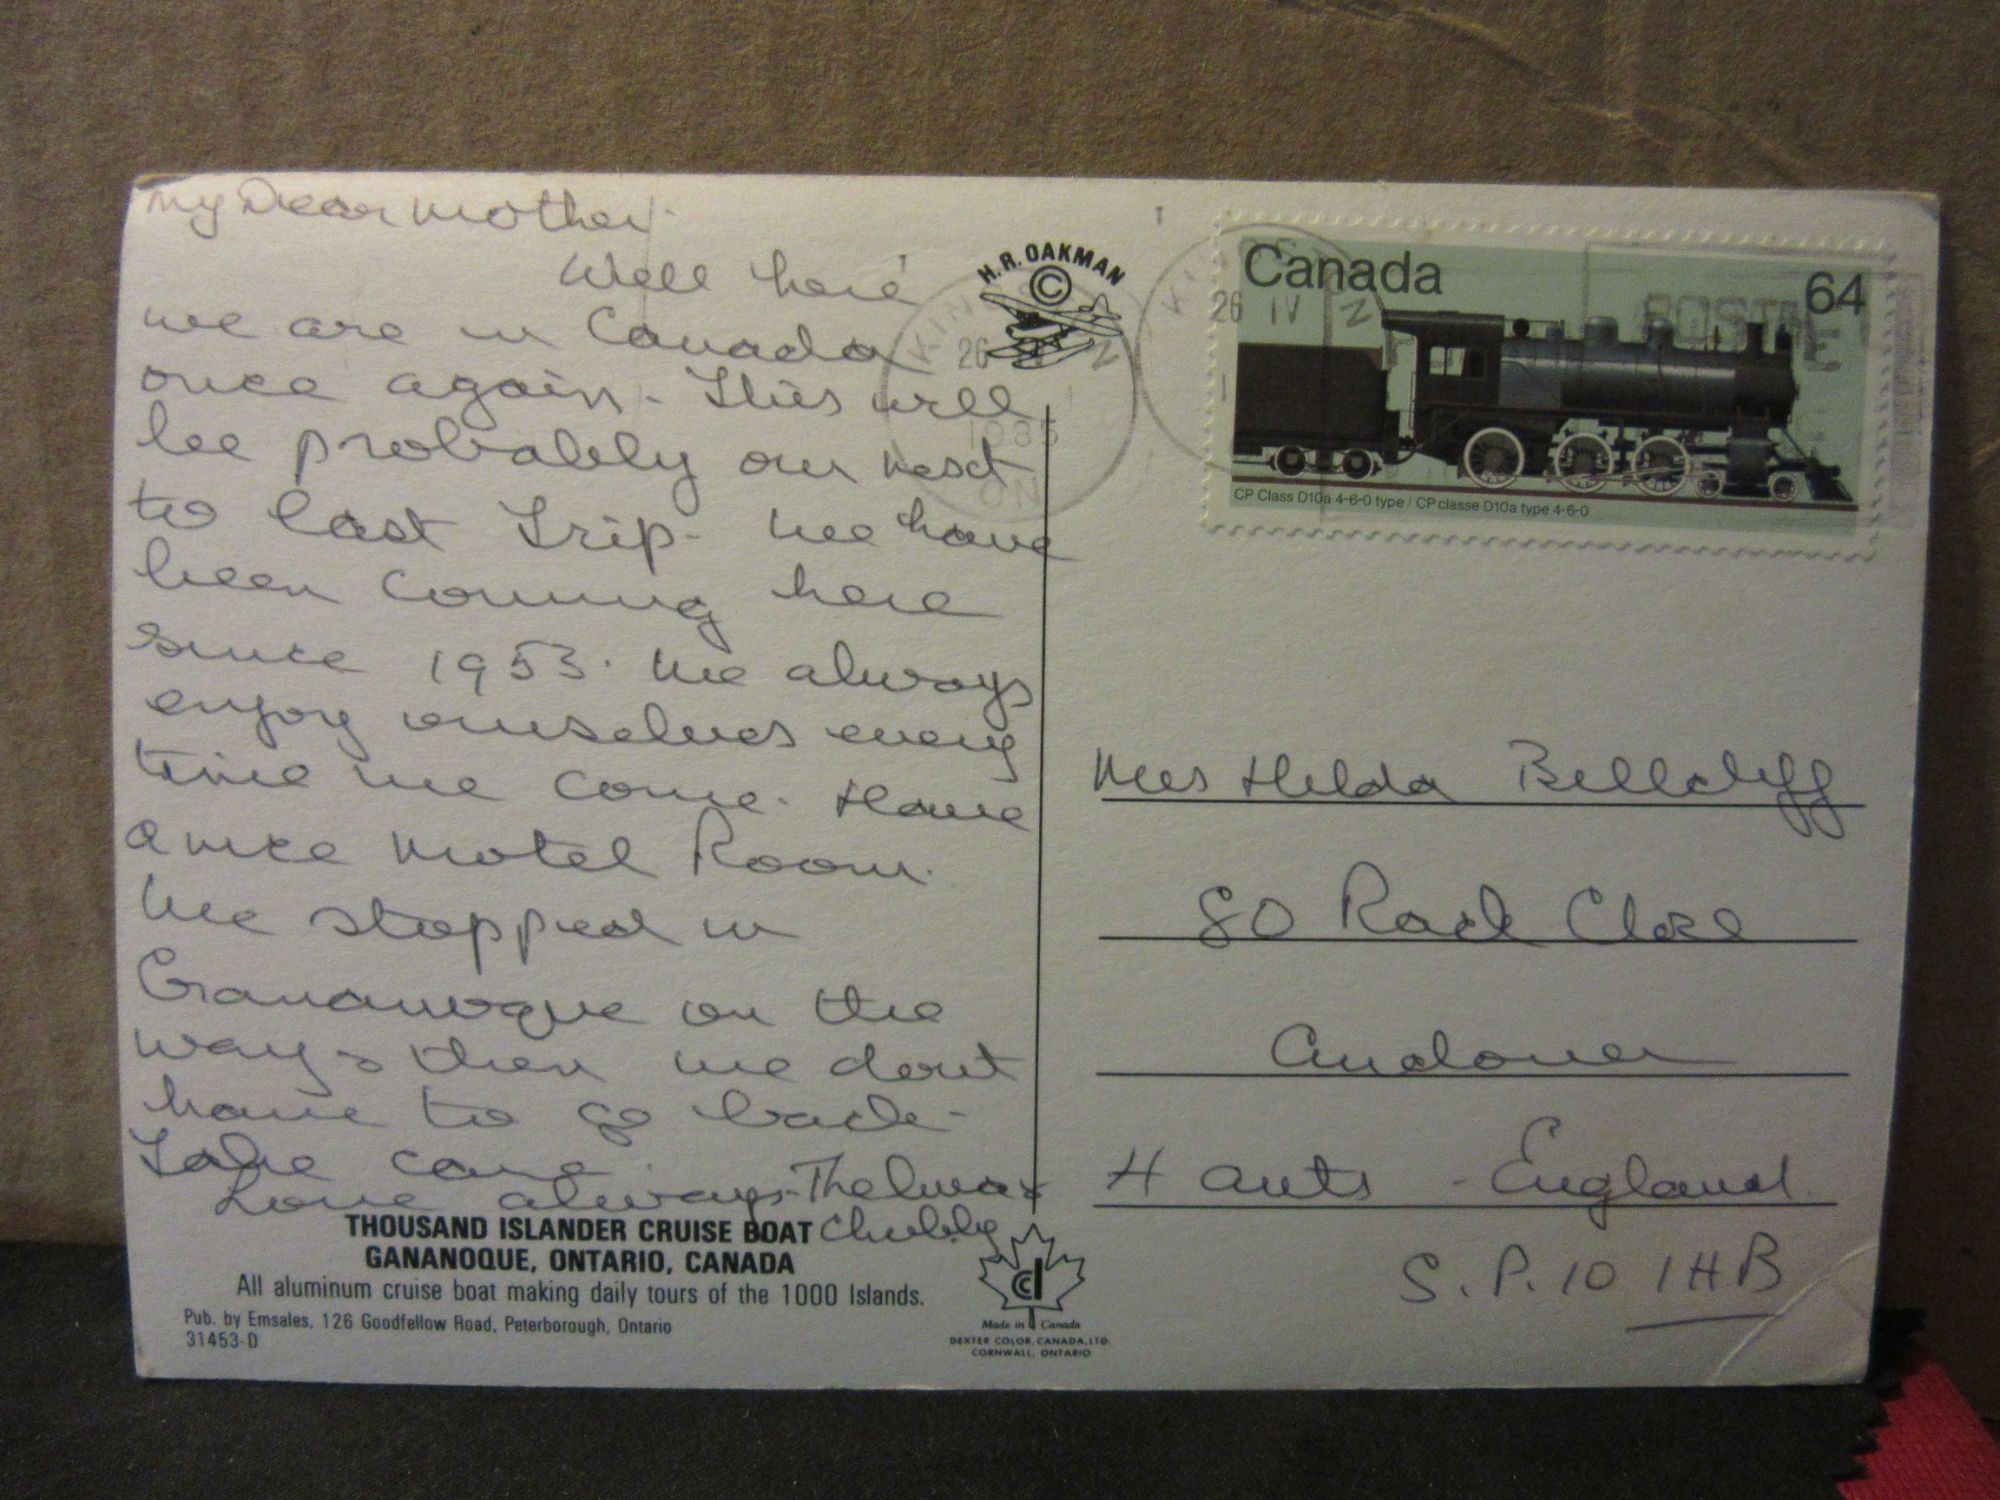 My Dear Mother
Well here
we are in Canada
once again - This will
be probably our next
to last Trip - We have
been coming here
since 1953. We always
enjoy ourselves every
time we come. Have
a nice Motel Room.
We stopped in
Gananoque on the
way - then we dont
have to go back -
Take care.
Love always - Thelma &
Chubby
THOUSAND ISLANDER CRUISE BOAT
GANANOQUE, ONTARIO, CANADA
All aluminum cruise boat making daily tours of the 1000 Islands.
Pub. by Emsales, 126 Goodfellow Road, Peterborough, Ontario
31453-D
H.R. OAKMAN
©
KINGSTON
26
1985
ON
Made in Canada
DEXTER COLOR, CANADA, LTD.
CORNWALL, ONTARIO
Canada
64
26 IV
POSTE
CP Class D10a 4-6-0 type / CP classe D10a type 4-6-0
Mrs Hilda Bellcliff
80 Rack Close
Andover
Hants - England
S.P.10 1HB